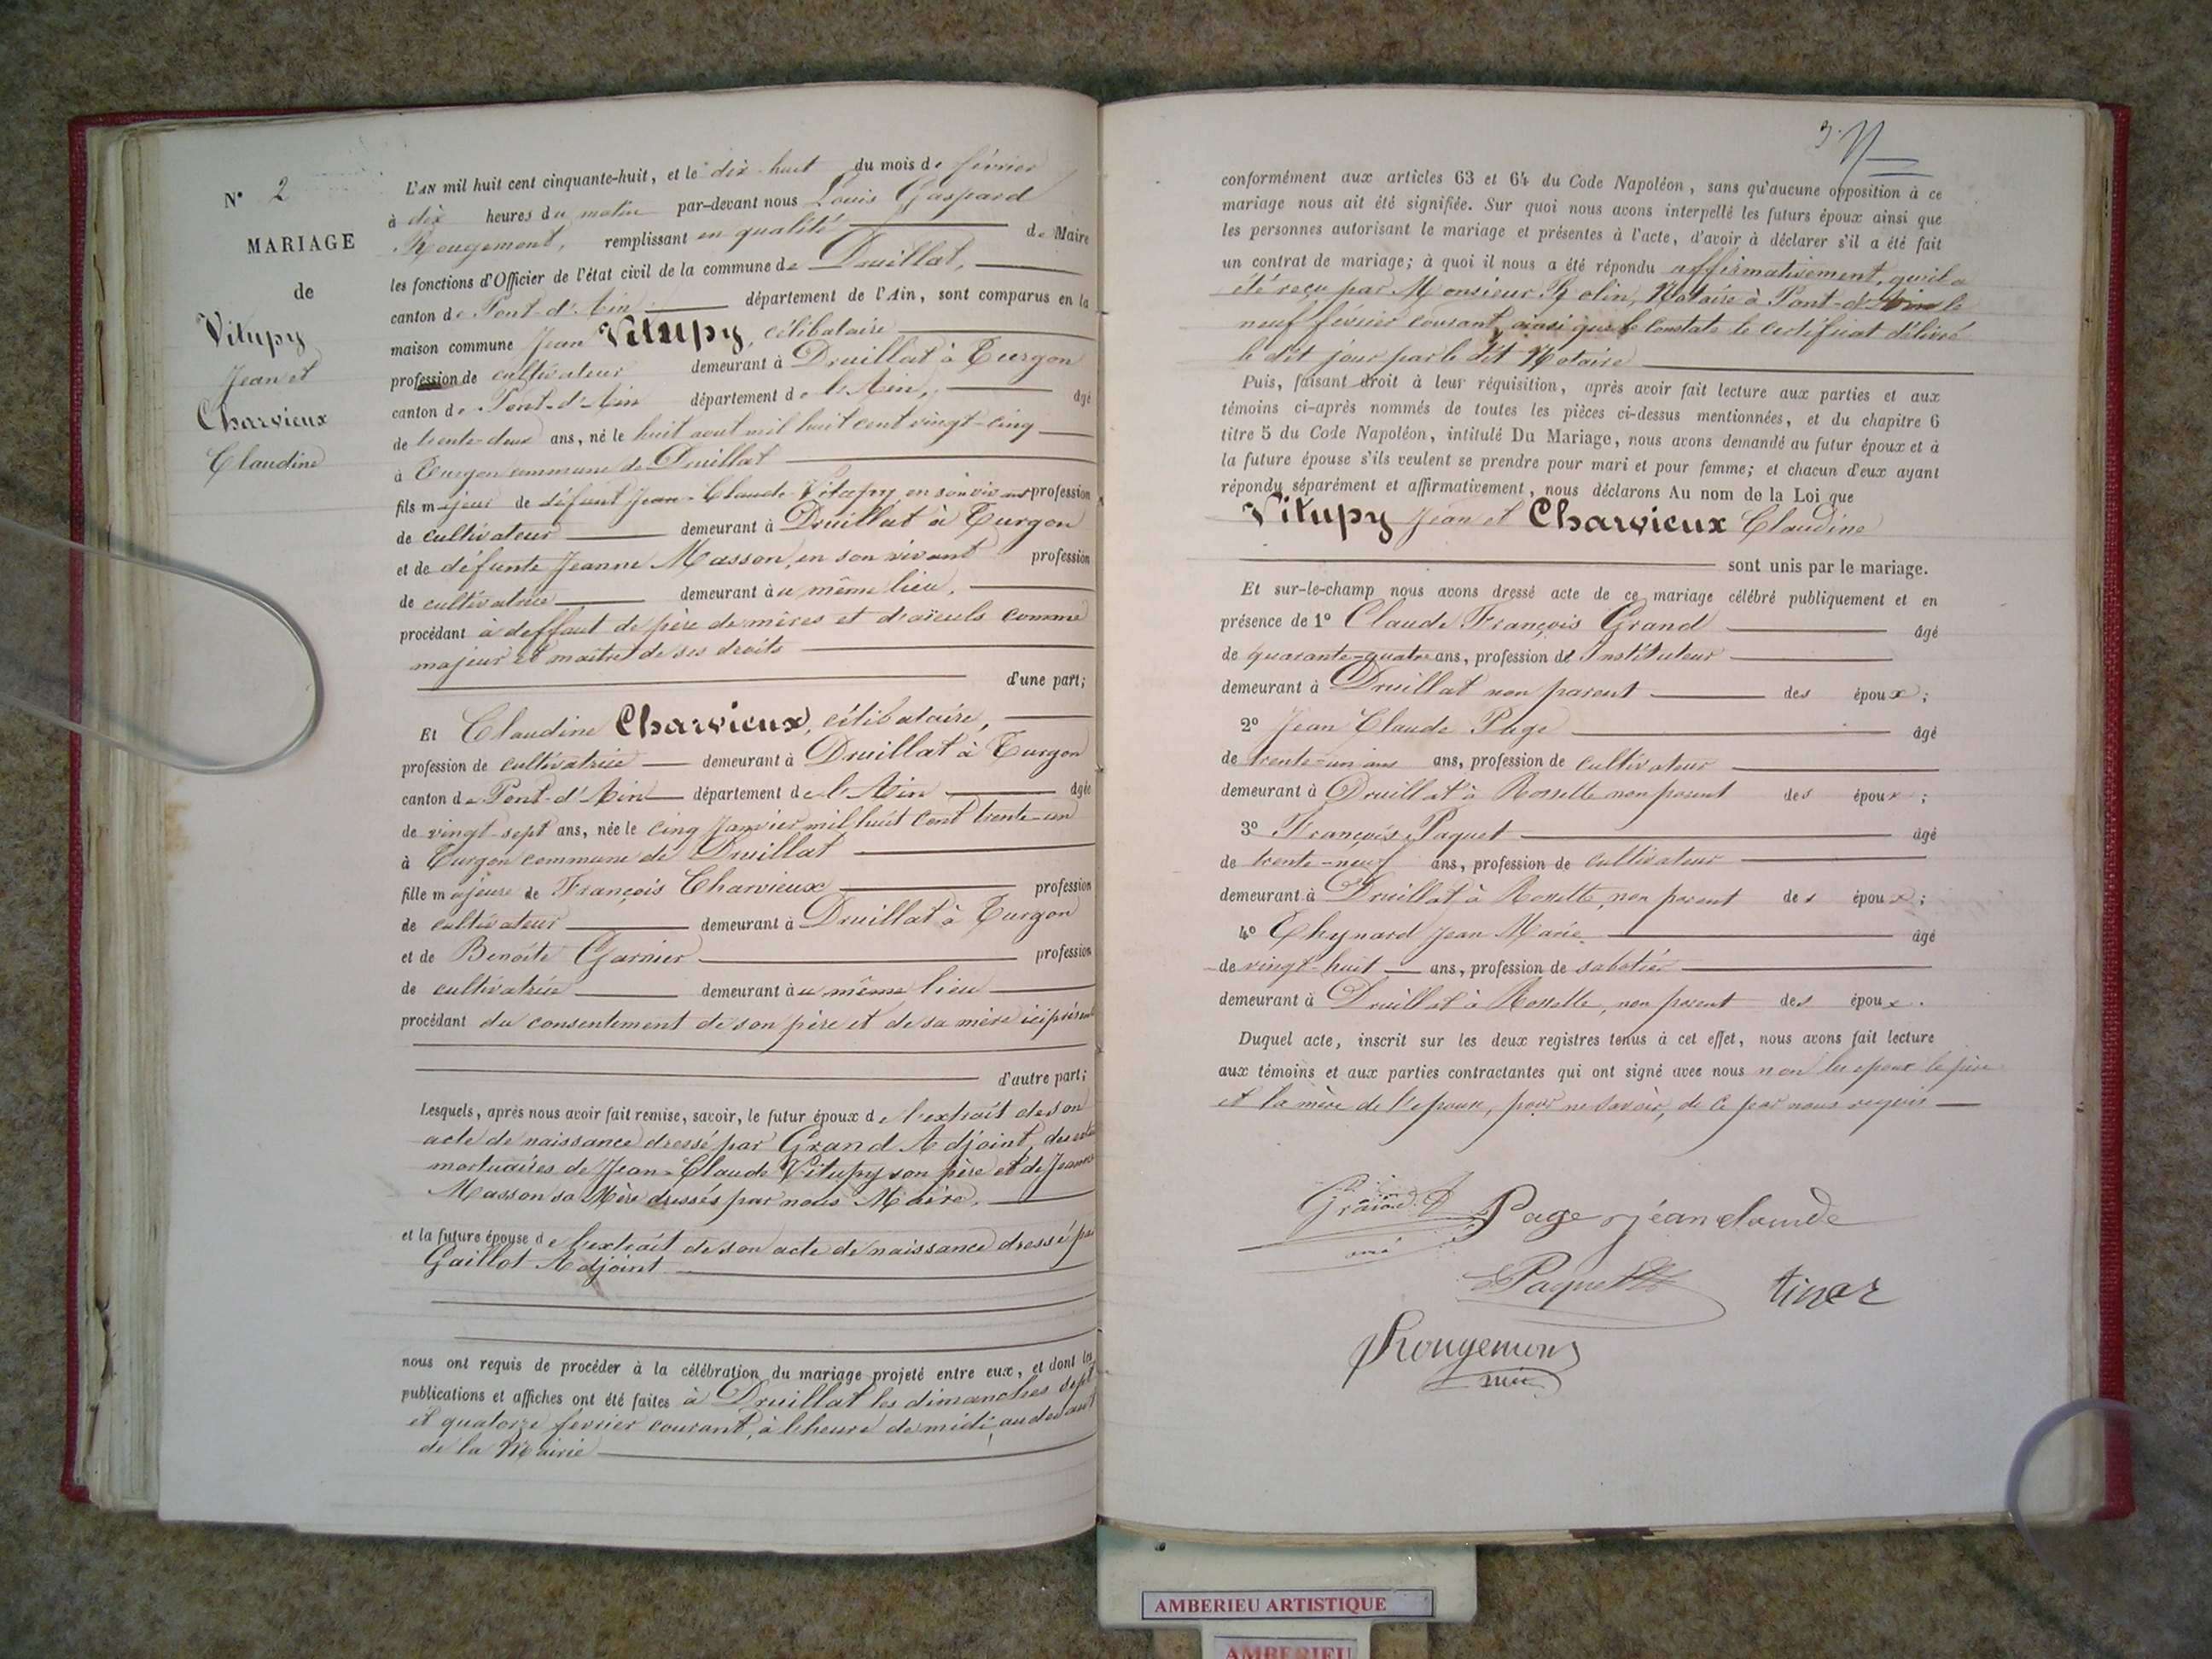 N° 2
MARIAGE
de
Vitupy
Jean et
Charvieux
Claudine
L'AN mil huit cent cinquante-huit, et le dix-huit du mois de février
à dix heures du matin par-devant nous Louis Gaspard
Rougemont, remplissant en qualité de Maire
les fonctions d'Officier de l'état civil de la commune de Druillat,
canton de Pont-d'Ain département de l'Ain, sont comparus en la
maison commune Jean Vitupy, célibataire
profession de cultivateur demeurant à Druillat à Turgon
canton de Pont-d'Ain département de l'Ain, âgé
de trente-deux ans, né le huit aout mil huit cent vingt-cinq
à Turgon commune de Druillat
fils majeur de défunt Jean-Claude Vitupy en son vivant profession
de cultivateur demeurant à Druillat à Turgon
et de défunte Jeanne Masson, en son vivant profession
de cultivatrice demeurant au même lieu,
procédant à deffaut de père de mères et d'aïeuls comme
majeur et maître de ses droits
d'une part;
Et Claudine Charvieux, célibataire,
profession de cultivatrice demeurant à Druillat à Turgon
canton de Pont-d'Ain département de l'Ain âgée
de vingt-sept ans, née le cinq Janvier mil huit cent trente-un
à Turgon commune de Druillat
fille majeure de François Charvieux profession
de cultivateur demeurant à Druillat à Turgon
et de Benoite Garnier profession
de cultivatrice demeurant au même lieu
procédant du consentement de son père et de sa mère ici présents
d'autre part;
Lesquels, après nous avoir fait remise, savoir, le futur époux de l'extrait de son
acte de naissance dressé par Grand Adjoint, des
mortuaires de Jean-Claude Vitupy son père et de Jeanne
Masson sa Mère dressés par nous Maire,
et la future épouse de l'extrait de son acte de naissance dressé par
Gaillot Adjoint
nous ont requis de procéder à la célébration du mariage projeté entre eux, et dont les
publications et affiches ont été faites à Druillat les dimanches sept
et quatorze fevrier courant, à l'heure de midi, au devant
de la Mairie
3
conformément aux articles 63 et 64 du Code Napoléon, sans qu'aucune opposition à ce
mariage nous ait été signifiée. Sur quoi nous avons interpellé les futurs époux ainsi que
les personnes autorisant le mariage et présentes à l'acte, d'avoir à déclarer s'il a été fait
un contrat de mariage; à quoi il nous a été répondu affirmativement, qu'il a
été reçu par Monsieur Rolin, Notaire à Pont-d'Ain le
neuf fevrier courant, ainsi que le constate le certificat délivré
le dit jour par le dit Notaire
Puis, faisant droit à leur réquisition, après avoir fait lecture aux parties et aux
témoins ci-après nommés de toutes les pièces ci-dessus mentionnées, et du chapitre 6
titre 5 du Code Napoléon, intitulé Du Mariage, nous avons demandé au futur époux et à
la future épouse s'ils veulent se prendre pour mari et pour femme; et chacun d'eux ayant
répondu séparément et affirmativement, nous déclarons Au nom de la Loi que
Vitupy Jean et Charvieux Claudine
sont unis par le mariage.
Et sur-le-champ nous avons dressé acte de ce mariage célébré publiquement et en
présence de 1° Claude François Grand âgé
de quarante-quatre ans, profession de Instituteur
demeurant à Druillat non parent des époux;
2° Jean Claude Page âgé
de trente-un ans ans, profession de cultivateur
demeurant à Druillat à Rosselle non parent des époux;
3° François Paquet âgé
de trente-neuf ans, profession de cultivateur
demeurant à Druillat à Rosselle, non parent des époux;
4° Chynard Jean Marie âgé
de vingt-huit ans, profession de sabotier
demeurant à Druillat à Rosselle, non parent des époux.
Duquel acte, inscrit sur les deux registres tenus à cet effet, nous avons fait lecture
aux témoins et aux parties contractantes qui ont signé avec nous non les epoux le père
et la mère de l'epouse, pour ne savoir, de ce par nous requis
Grand
Page jean claude
Paquet
Rougemont
AMBERIEU ARTISTIQUE
AMBERIEU